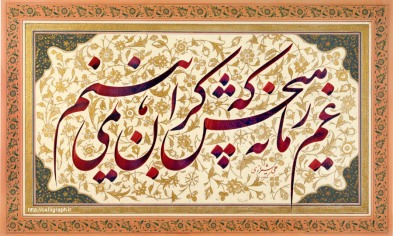 غم زمانه که هیچش کران نمی بینم
http://calligraph.ir